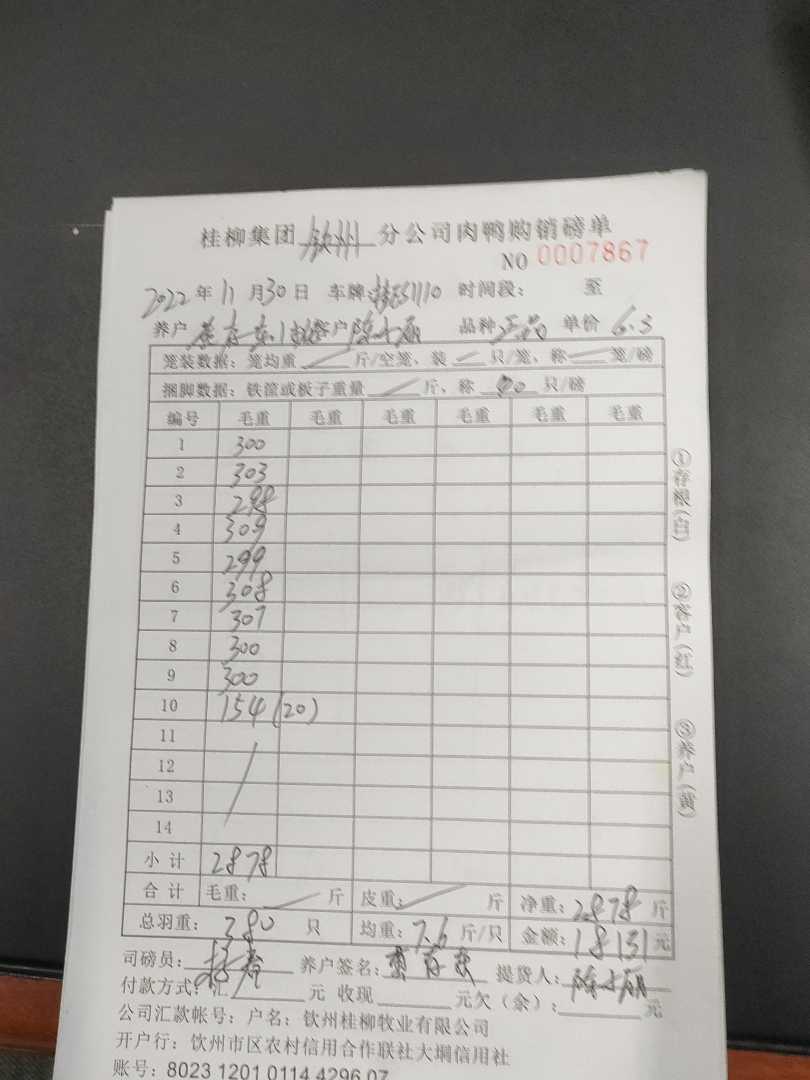 桂柳集团 钦州 分公司肉鸭购销磅单
NO 0007867
2022 年 11 月 30 日 车牌: 1110 时间段: 至
养户 客户 陈小丽 品种 正品 单价 6.3
笼装数据: 笼均重 斤/空笼、装 只/笼、称 笼/磅
捆脚数据: 铁筐或板子重量 斤、称 只/磅
编号 毛重 毛重 毛重 毛重 毛重 毛重
1 300
2 303
3 298
4 309
5 299
6 308
7 307
8 300
9 300
10 154 (20)
11
12
13
14
小 计 2878
合 计 毛重: 斤 皮重: 斤 净重: 2878 斤
总羽重: 380 只 均重: 7.6 斤/只 金额: 18131 元
司磅员: 养户签名: 提货人: 陈小丽
付款方式: 汇 元 收现 元欠（余）: 元
公司汇款帐号: 户名: 钦州桂柳牧业有限公司
开户行: 钦州市区农村信用合作联社大垌信用社
账号: 8023 1201 0114 4296 07
①存根(白)
②客户(红)
③养户(黄)